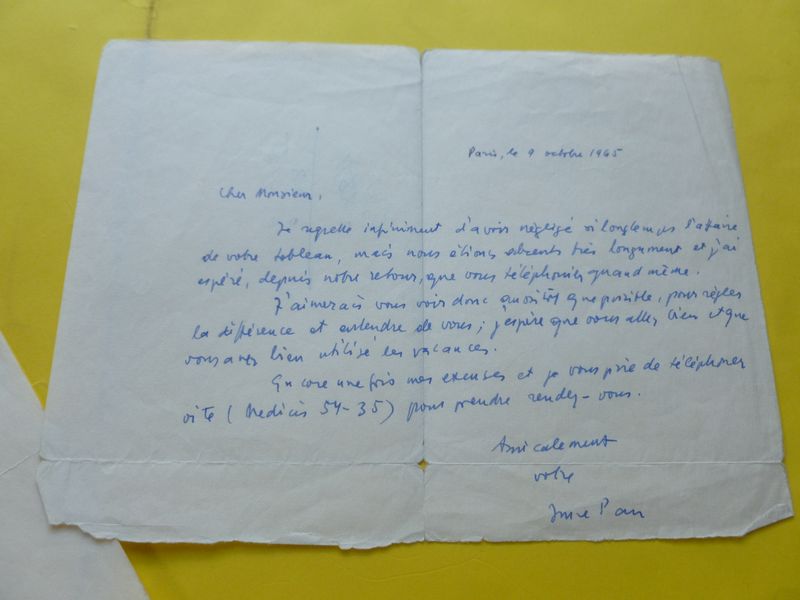 Paris, le 9 octobre 1965
Cher Monsieur,
Je regrette infiniment d'avoir négligé si longtemps l'affaire
de votre tableau, mais nous étions absents très longument et j'ai
espéré, depuis notre retour, que vous téléphoniez quand même.
J'aimerais vous voir donc aussitôt que possible, pour régler
la différence et entendre de vous; j'espère que vous allez bien et que
vous avez bien utilisé les vacances.
Encore une fois mes excuses et je vous prie de téléphoner
vite (Medicis 54-35) pour prendre rendez-vous.
Amicalement
votre
Imre Pan